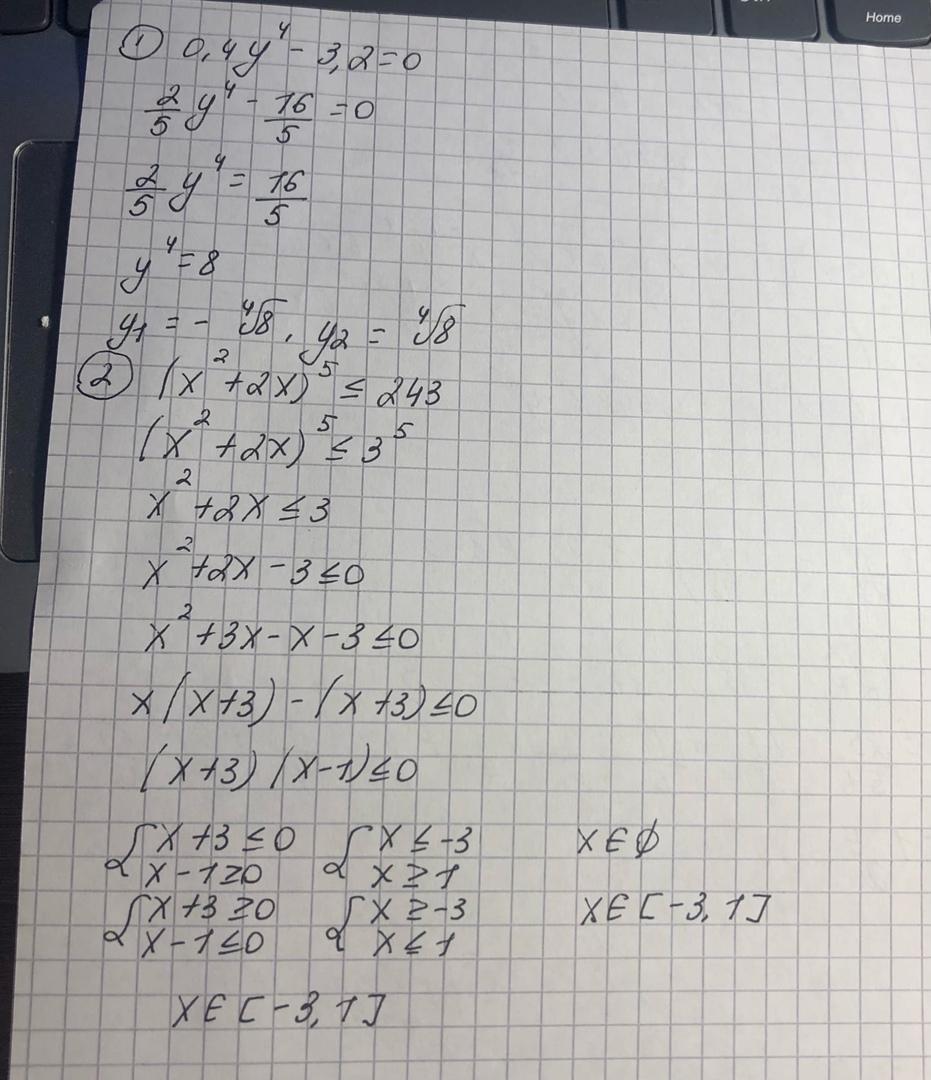 Home
① 0,4y⁴ - 3,2 = 0
2/5 y⁴ - 16/5 = 0
2/5 y⁴ = 16/5
y⁴ = 8
y₁ = - ⁴√8, y₂ = ⁴√8
② (x² + 2x)⁵ ≤ 243
(x² + 2x)⁵ ≤ 3⁵
x² + 2x ≤ 3
x² + 2x - 3 ≤ 0
x² + 3x - x - 3 ≤ 0
x(x + 3) - (x + 3) ≤ 0
(x + 3)(x - 1) ≤ 0
{ x + 3 ≤ 0 { x ≤ -3 x ∈ ∅
x - 1 ≥ 0 x ≥ 1
{ x + 3 ≥ 0 { x ≥ -3 x ∈ [-3, 1]
x - 1 ≤ 0 x ≤ 1
x ∈ [-3, 1]